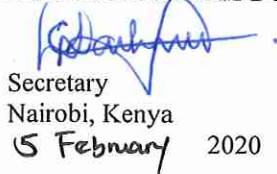 Secretary
Nairobi, Kenya
5 February 2020